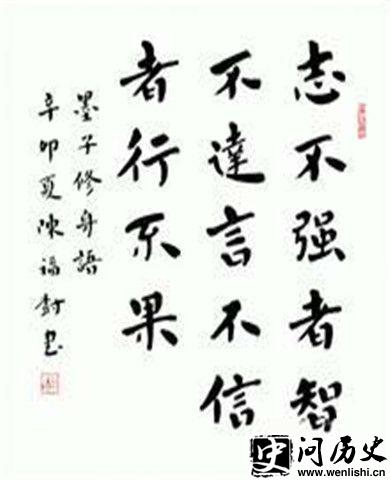 志不强者智
不達言不信
者行不果
墨子修身語
辛卯夏陳福
书
问历史
www.wenlishi.cn